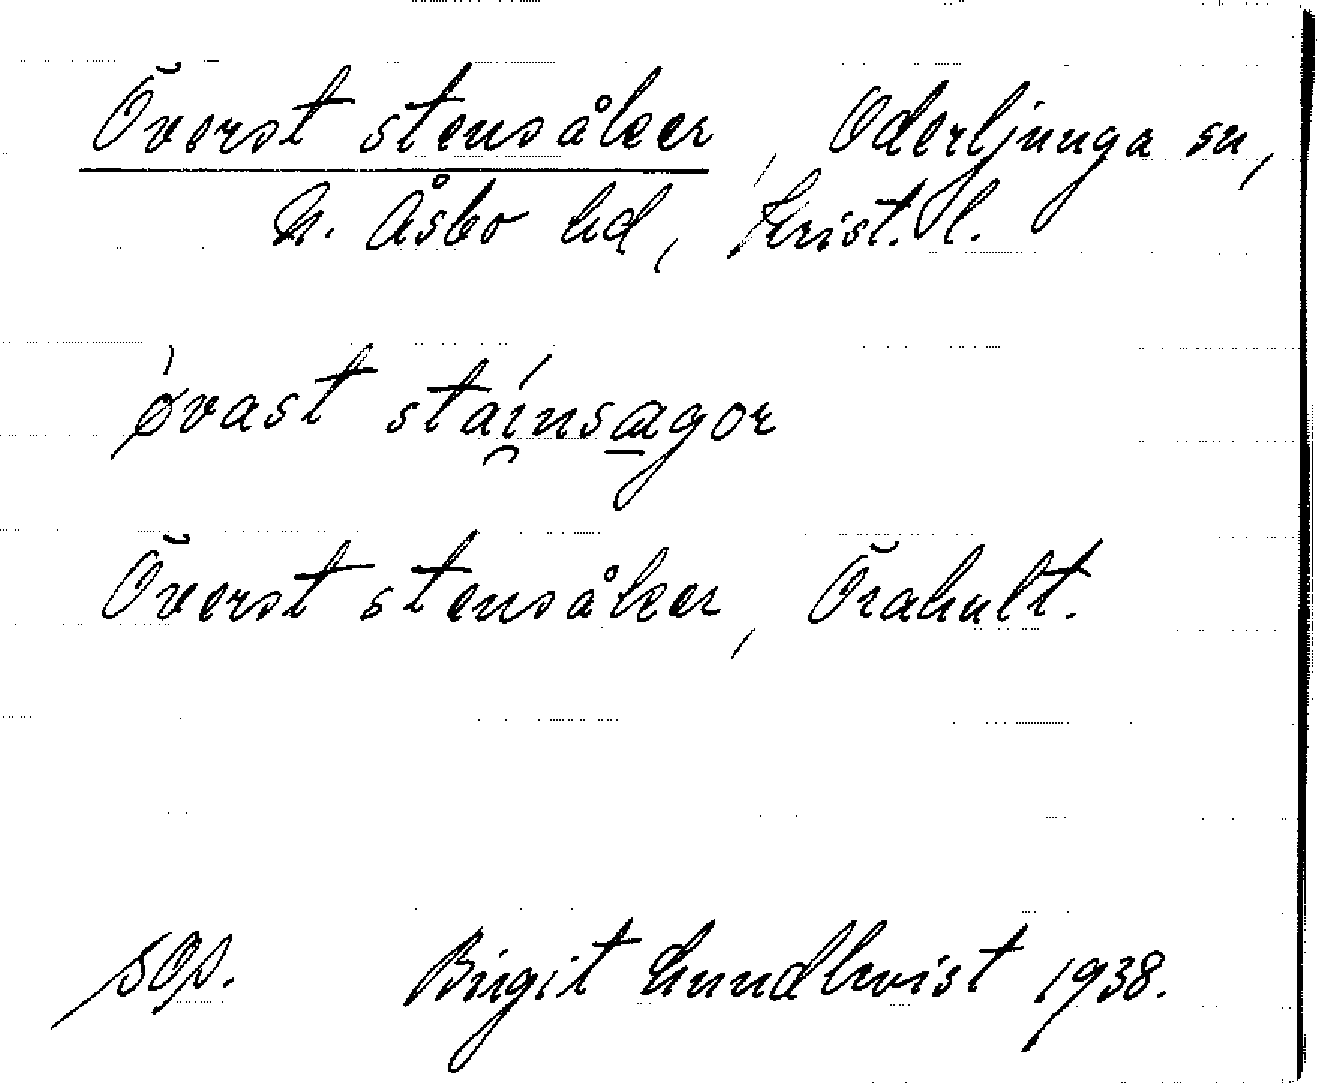 Överst stensåker, Oderljunga sn,
N. Åsbo hd, Krist. l.
øvast staínsagor
Överst stensåker, Örahult.
sOp. Birgit Lundkvist 1938.